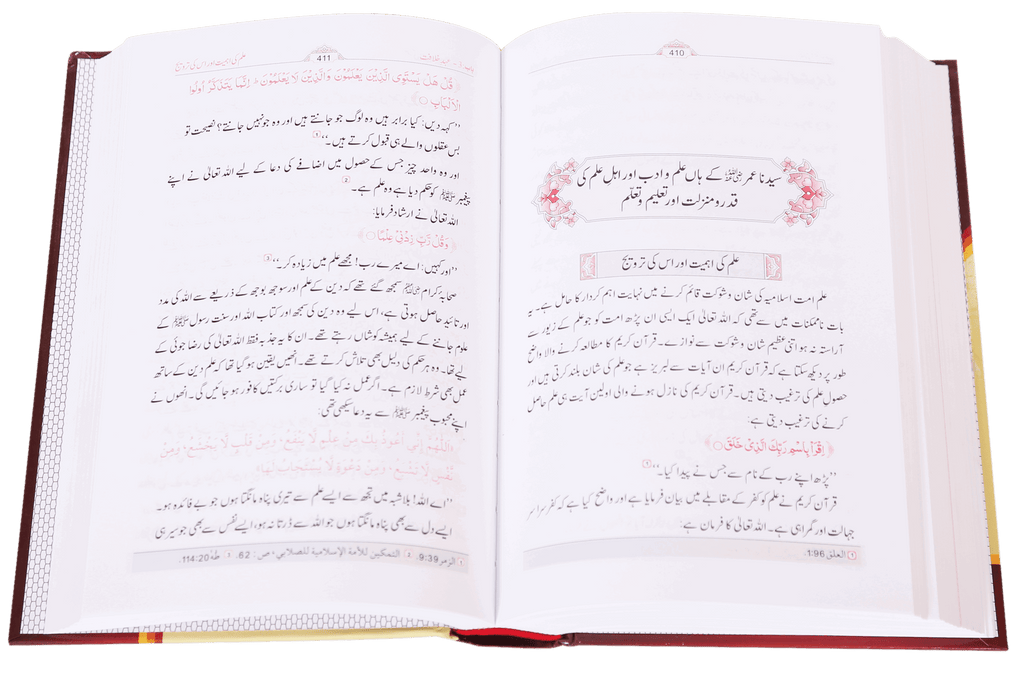 410
سیدنا عمر رضی اللہ عنہ کے ہاں علم و ادب اور اہلِ علم کی
قدر و منزلت اور تعلیم و تعلّم
علم کی اہمیت اور اس کی ترویج
علم امت اسلامیہ کی شان و شوکت قائم کرنے میں نہایت اہم کردار کا حامل ہے۔ یہ
بات ناممکنات میں سے تھی کہ اللہ تعالیٰ ایک ایسی ان پڑھ امت کو جو علم کے زیور سے
آراستہ نہ ہو اتنی عظیم شان و شوکت سے نوازے۔ قرآن کریم کا مطالعہ کرنے والا واضح
طور پر دیکھ سکتا ہے کہ قرآن کریم ان آیات سے لبریز ہے جو علم کی شان بلند کرتی ہیں اور
حصول علم کی ترغیب دیتی ہیں۔ قرآن کریم کی نازل ہونے والی اولین آیت ہی علم حاصل
کرنے کی ترغیب دیتی ہے:
﴿ اِقْرَاْ بِاسْمِ رَبِّكَ الَّذِيْ خَلَقَ ﴾
”پڑھ اپنے رب کے نام سے جس نے پیدا کیا۔“ ①
قرآن کریم نے علم کو کفر کے مقابلے میں بیان فرمایا ہے اور واضح کیا ہے کہ کفر سراسر
جہالت اور گمراہی ہے۔ اللہ تعالیٰ کا فرمان ہے:
① العلق 1:96.
411
علم کی اہمیت اور اس کی ترویج
﴿ قُلْ هَلْ يَسْتَوِى الَّذِيْنَ يَعْلَمُوْنَ وَالَّذِيْنَ لَا يَعْلَمُوْنَ ؕ اِنَّمَا يَتَذَكَّرُ اُولُوا
الْاَلْبَابِ ﴾
”کہہ دیں: کیا برابر ہیں وہ لوگ جو جانتے ہیں اور وہ جو نہیں جانتے؟ نصیحت تو
بس عقلوں والے ہی قبول کرتے ہیں۔“ ①
اور وہ واحد چیز جس کے حصول میں اضافے کی دعا کے لیے اللہ تعالیٰ نے اپنے
پیغمبر ﷺ کو حکم دیا ہے وہ علم ہے۔ ②
اللہ تعالیٰ نے ارشاد فرمایا:
﴿ وَقُلْ رَّبِّ زِدْنِيْ عِلْمًا ﴾
”اور کہیں: اے میرے رب! مجھے علم میں زیادہ کر۔“ ③
صحابۂ کرام رضی اللہ عنہم سمجھ گئے تھے کہ دین کے علم اور سوجھ بوجھ کے ذریعے سے اللہ کی مدد
اور تائید حاصل ہوتی ہے، اس لیے وہ دین کی سمجھ اور کتاب اللہ اور سنت رسول ﷺ کے
علوم جاننے کے لیے ہمیشہ کوشاں رہتے تھے۔ ان کا یہ جذبہ فقط اللہ تعالیٰ کی رضا جوئی کے
لیے تھا۔ وہ ہر حکم کی دلیل بھی تلاش کرتے تھے۔ انھیں یقین ہو گیا تھا کہ علم دین کے ساتھ
عمل بھی شرط لازم ہے۔ اگر عمل نہ کیا گیا تو ساری برکتیں کافور ہو جائیں گی۔ انھوں نے
اپنے محبوب پیغمبر ﷺ سے یہ دعا سیکھی تھی:
«اَللّٰهُمَّ إِنِّي أَعُوذُ بِكَ مِنْ عِلْمٍ لَّا يَنْفَعُ، وَمِنْ قَلْبٍ لَّا يَخْشَعُ، وَمِنْ
نَّفْسٍ لَّا تَشْبَعُ، وَمِنْ دَعْوَةٍ لَّا يُسْتَجَابُ لَهَا»
”اے اللہ! بلاشبہ میں تجھ سے ایسے علم سے تیری پناہ مانگتا ہوں جو بے فائدہ ہو۔
ایسے دل سے بھی پناہ مانگتا ہوں جو اللہ سے ڈرتا نہ ہو، ایسے نفس سے بھی جو سیر ہی
① الزمر 9:39. ② التمكين للأمة الإسلامية للصلابي، ص: 62. ③ طٰهٰ 114:20.